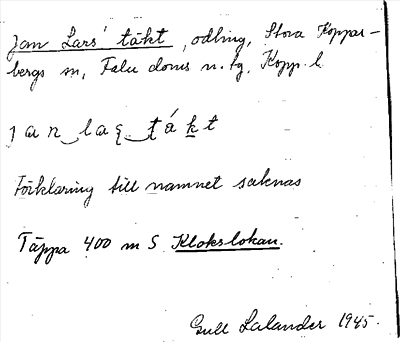 Jan Lars' täkt, odling, Stora Koppar-
bergs sn, Falu doms n. tg, Kopp. l.
jan‿laꞩ‿tákt
Förklaring till namnet saknas
Täppa 400 m S Klokslokan.
Gull Lalander 1945.